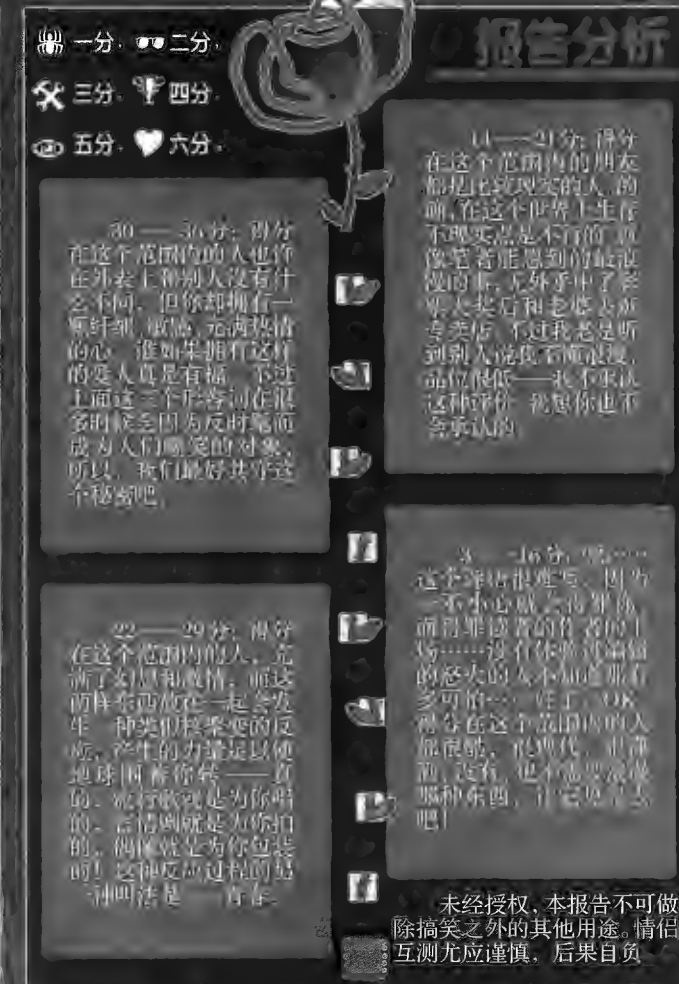 一分， 二分，
三分， 四分，
五分， 六分。
报告分析
30——36分：得分
在这个范围内的人也许
在外表上和别人没有什
么不同，但你却拥有一
颗纤细、敏感、充满热情
的心，谁如果拥有这样
的爱人真是有福，不过
上面这三个形容词在很
多时候会因为反时髦而
成为人们嘲笑的对象，
所以，我们最好共守这
个秘密吧。
22——29分：得分
在这个范围内的人，充
满了幻想和激情，而这
两样东西放在一起会发
生一种类似核聚变的反
应，产生的力量足以使
地球围着你转——真
的，流行歌就是为你唱
的，言情剧就是为你拍
的，偶像就是为你包装
的！这种反应过程的另
一种叫法是——青春。
14——21分：得分
在这个范围内的朋友
都是比较现实的人，的
确，在这个世界上生存
不现实点是不行的，就
像笔者能想到的最浪
漫的事，无外乎中了彩
票大奖后和老婆去逛
专卖店，不过我老是听
到别人说我不懂浪漫，
品位很低——我不承认
这种评价，我想你也不
会承认的。
这个评语很难写，因为
一不小心就会得罪你，
的怒火的人不知道那有
多可怕…
得分在这个范围内的人
都很酷，很现代，很
没有，也不需要浪漫
那种东西，让它见鬼去
吧！
未经授权，本报告不可做
除搞笑之外的其他用途。情侣
互测尤应谨慎，后果自负